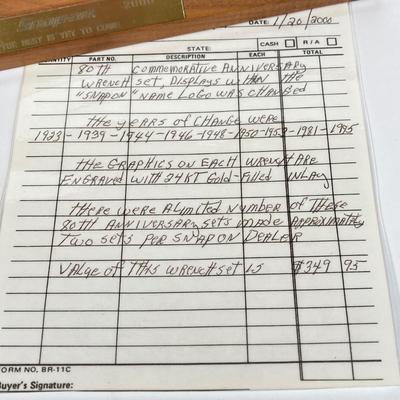 2000
THE BEST IS YET TO COME!
DATE: 1/20/2000
STATE:
CASH R/A
QUANTITY PART NO. DESCRIPTION EACH TOTAL
80TH COMMEMORATIVE ANNIVERSARY
WRENCH SET, DISPLAYS WHEN THE
"SNAPON" NAME LOGO WAS CHANGED
THE YEARS OF CHANGE WERE
1923-1939-1944-1946-1948-1950-1952-1981-1995
THE GRAPHICS ON EACH WRENCH ARE
ENGRAVED WITH 24KT GOLD-FILLED INLAY
THERE WERE A LIMITED NUMBER OF THESE
80TH ANNIVERSARY SETS MADE APPROXIMATELY
TWO SETS PER SNAPON DEALER
VALUE OF THIS WRENCH SET IS $349 95
FORM NO. BR-11C
Buyer's Signature: